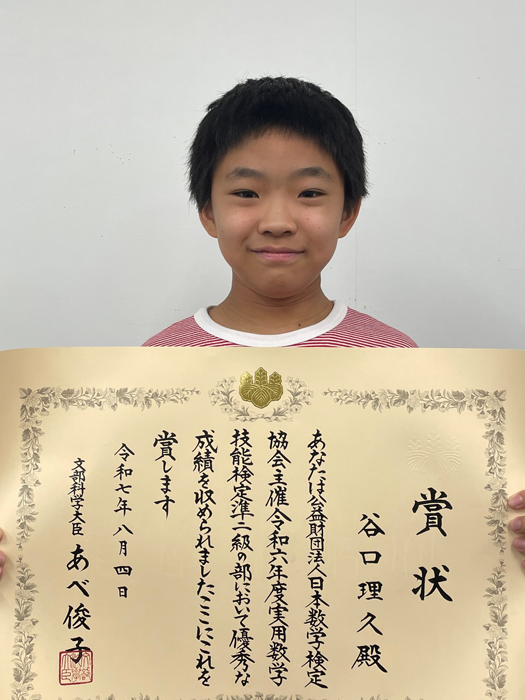 賞状
谷口理久殿
あなたは公益財団法人日本数学検定
協会主催令和六年度実用数学
技能検定準二級の部において優秀な
成績を収められましたここにこれを
賞します
令和七年八月四日
文部科学大臣 あべ俊子